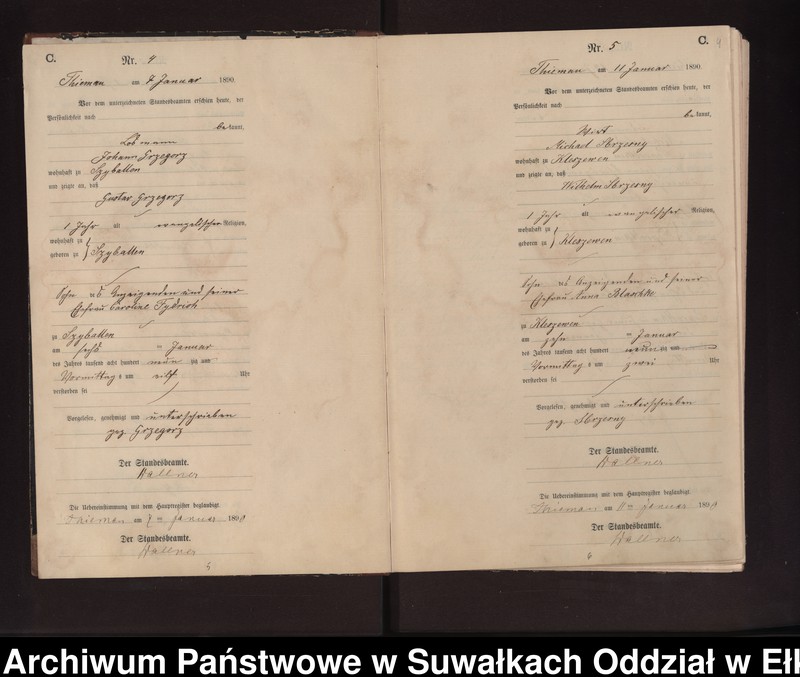 C.
Nr. 4
Thieman am 7 Januar 1890.
Vor dem unterzeichneten Standesbeamten erschien heute, der
Persönlichkeit nach
bekannt,
Losmann
Johann Grzegorz
wohnhaft zu Szyballen
und zeigte an, daß
Gustav Grzegorz
1 Jahr alt evangelischer Religion,
wohnhaft zu
geboren zu Szyballen
Sohn des Anzeigenden und seiner
Ehefrau Caroline
zu Szyballen
am sechs ten Januar
des Jahres tausend acht hundert neun zig um
Vormittags um elf Uhr
verstorben sei
Vorgelesen, genehmigt und unterschrieben
gez. Grzegorz
Der Standesbeamte.
Hallner
Die Uebereinstimmung mit dem Hauptregister beglaubigt.
Thieman am 7 ten Januar 1890
Der Standesbeamte.
Hallner
C.
Nr. 5
Thieman am 11 Januar 1890.
Vor dem unterzeichneten Standesbeamten erschien heute, der
Persönlichkeit nach
bekannt,
Wirt
Michael Skrzesny
wohnhaft zu Kleszewen
und zeigte an, daß
Wilhelm Skrzesny
1 Jahr alt evangelischer Religion,
wohnhaft zu
geboren zu Kleszewen
Sohn des Anzeigenden und seiner
Ehefrau Anna Blaschke
zu Kleszewen
am zehn ten Januar
des Jahres tausend acht hundert neun zig um
Vormittags um zwei Uhr
verstorben sei
Vorgelesen, genehmigt und unterschrieben
gez. Skrzesny
Der Standesbeamte.
Hallner
Die Uebereinstimmung mit dem Hauptregister beglaubigt.
Thieman am 11 ten Januar 1890
Der Standesbeamte.
Hallner
Archiwum Państwowe w Suwałkach Oddział w Eł